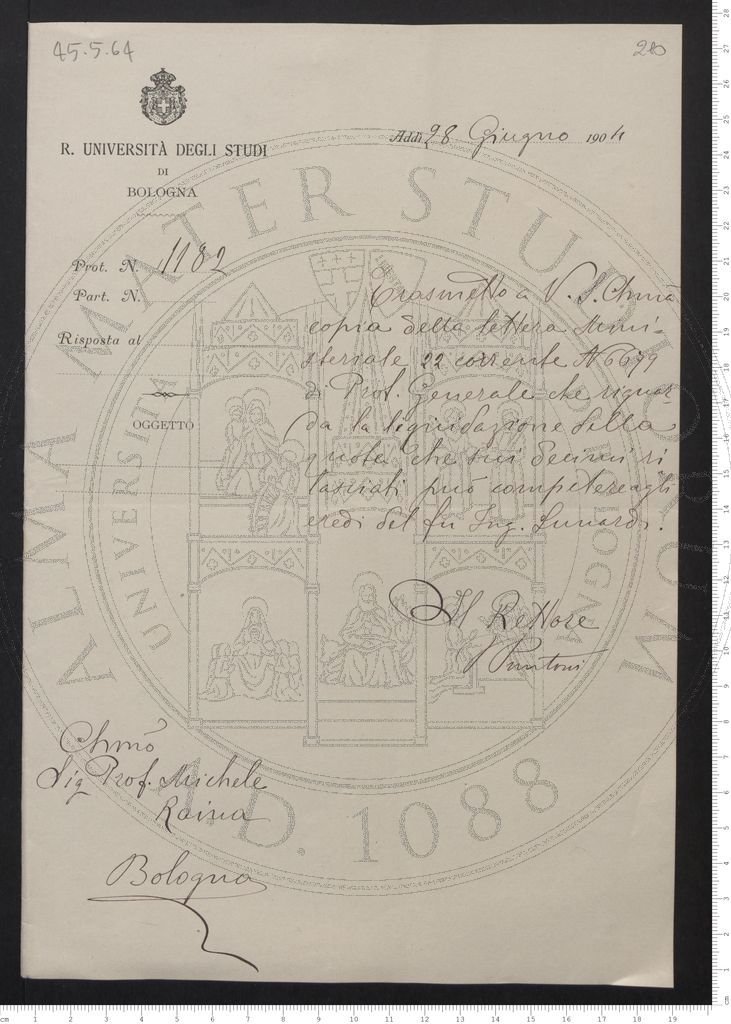 45.5.64
280
R. UNIVERSITÀ DEGLI STUDI
DI
BOLOGNA
Addì 28 Giugno 1904
Prot. N. 1182
Part. N.
Risposta al
OGGETTO
Trasmetto a V. S. Chmã
copia della lettera Mini-
steriale 22 corrente N 6679
di Prot. Generale che riguar-
da la liquidazione della
quota che sui decimi ri
lasciati può competere agli
eredi del fu Ing. Lunardi.
Il Rettore
Puntoni
Chmõ
Sig Prof. Michele
Raina
Bologna
ALMA MATER STUDIORUM
A.D. 1088